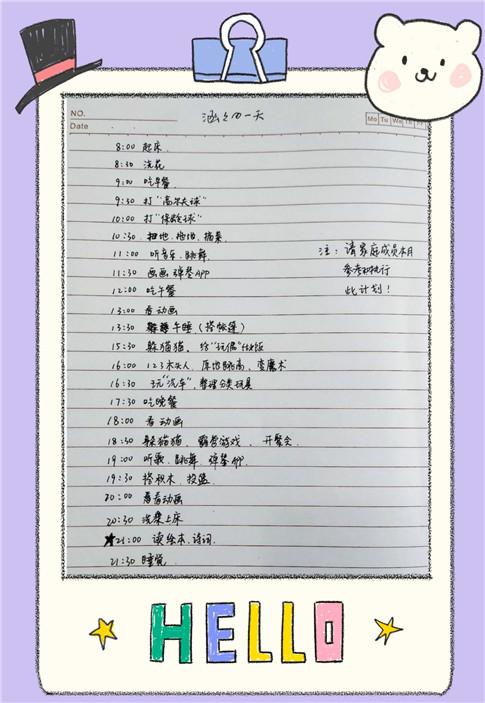 NO.
Date
涵之の一天
Mo Tu We Th Fr
8:00 起床
8:30 浇花
9:00 吃早餐
9:30 打"高尔夫球"
10:00 打"保龄球"
10:30 扫地、拖地、摘菜
11:00 听音乐、跳舞
11:30 画画 弹琴APP
12:00 吃午餐
注：请家庭成员本月
参考和执行
此计划！
13:00 看动画
13:30 午睡（搭帐篷）
15:30 躲猫猫、给"玩偶"做饭
16:00 123木头人、原地跳高、变魔术
16:30 玩"汽车"、整理分类玩具
17:30 吃晚餐
18:00 看动画
18:30 躲猫猫、露营游戏、开餐会
19:00 听歌、跳舞、弹琴
19:30 搭积木、投篮
20:00 看动画
20:30 洗漱上床
★21:00 读绘本、诗词
21:30 睡觉
HELLO